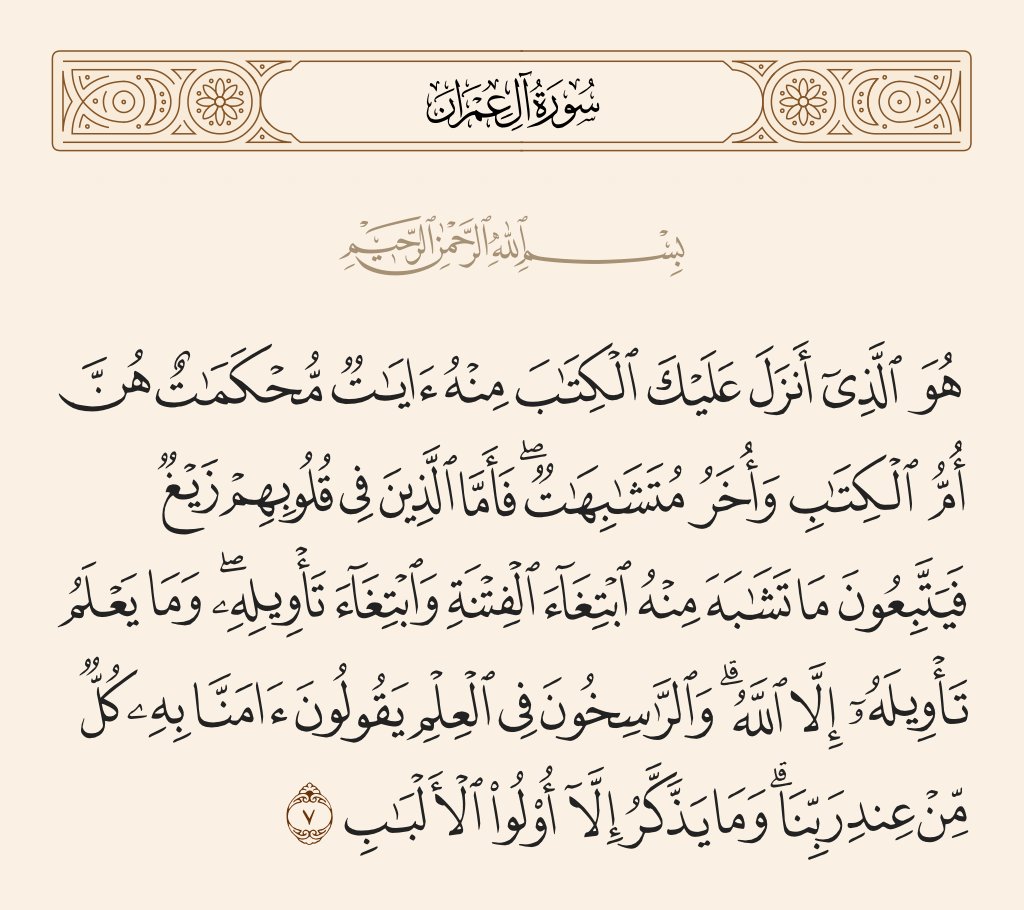 سُورَةُ آلِ عِمْرَان
بِسْمِ ٱللَّهِ ٱلرَّحْمَٰنِ ٱلرَّحِيمِ
هُوَ ٱلَّذِىٓ أَنزَلَ عَلَيْكَ ٱلْكِتَٰبَ مِنْهُ ءَايَٰتٌ مُّحْكَمَٰتٌ هُنَّ
أُمُّ ٱلْكِتَٰبِ وَأُخَرُ مُتَشَٰبِهَٰتٌ ۖ فَأَمَّا ٱلَّذِينَ فِى قُلُوبِهِمْ زَيْغٌ
فَيَتَّبِعُونَ مَا تَشَٰبَهَ مِنْهُ ٱبْتِغَآءَ ٱلْفِتْنَةِ وَٱبْتِغَآءَ تَأْوِيلِهِۦ ۖ وَمَا يَعْلَمُ
تَأْوِيلَهُۥٓ إِلَّا ٱللَّهُ ۗ وَٱلرَّٰسِخُونَ فِى ٱلْعِلْمِ يَقُولُونَ ءَامَنَّا بِهِۦ كُلٌّ
مِّنْ عِندِ رَبِّنَا ۗ وَمَا يَذَّكَّرُ إِلَّآ أُو۟لُوا۟ ٱلْأَلْبَٰبِ ٧